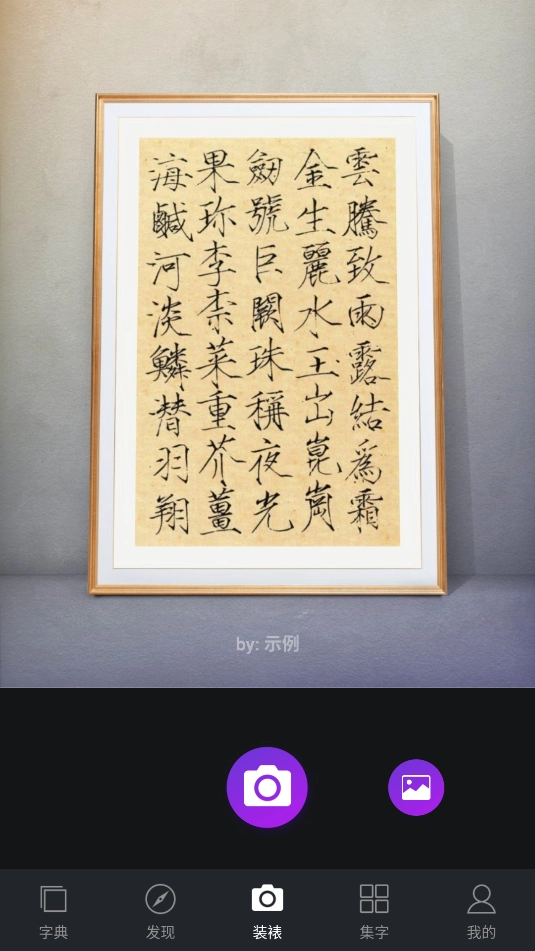 雲騰致雨露結爲霜
金生麗水玉出崑崗
劒號巨闕珠稱夜光
果珍李柰菜重芥薑
海鹹河淡鱗潛羽翔
by: 示例
字典
发现
装裱
集字
我的